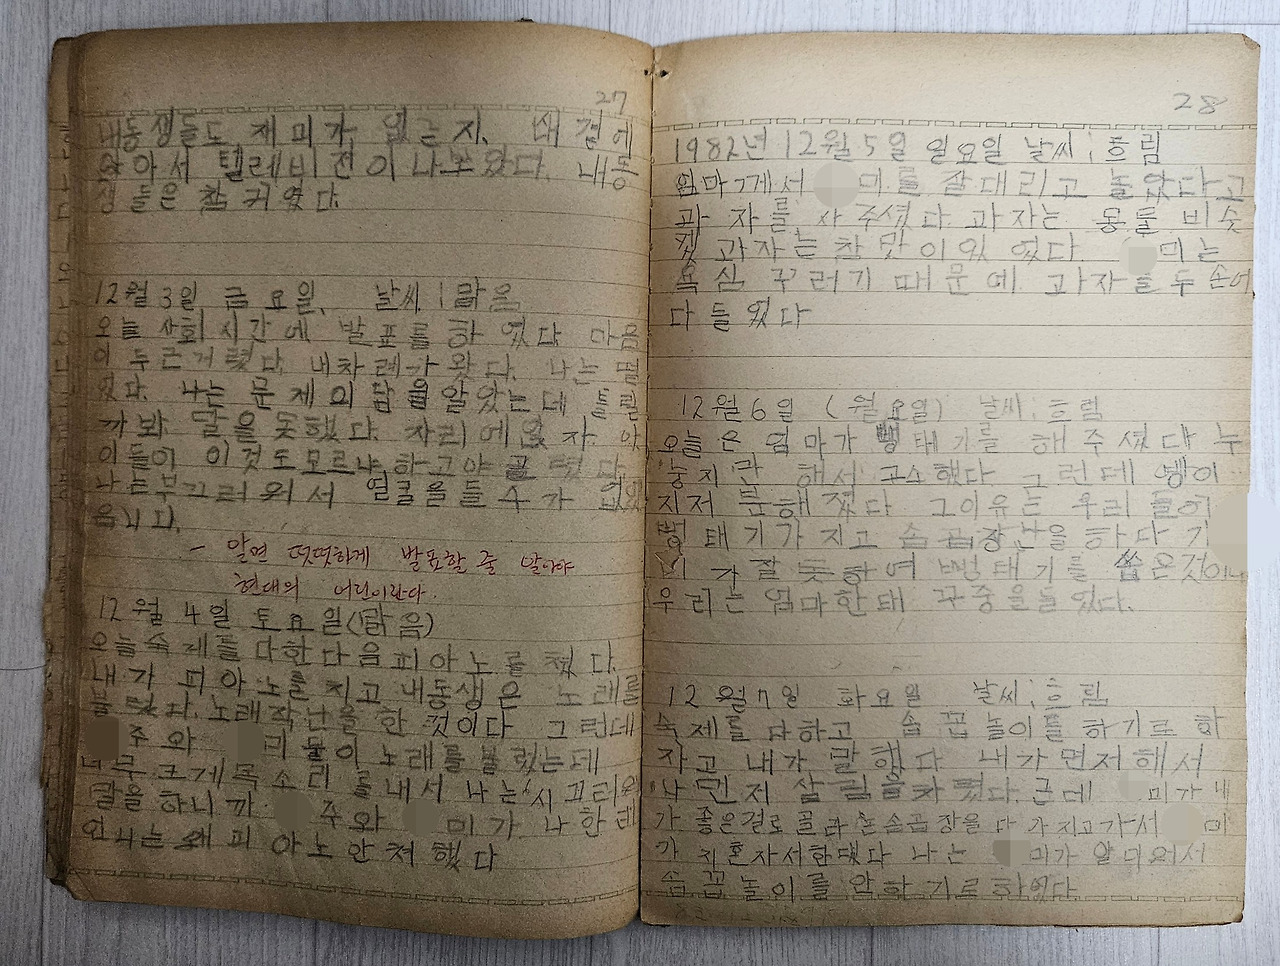 27
내동생들도 재미가 없는지, 내 곁에
와아서 텔레비전이나 보았다. 내동
생들은 참 귀였다.
12월 3일 금요일, 날씨:맑음
오늘 사회 시간에 발표를 하였다 마음
이 두근거렸다. 내차례가 왔다. 나는 떨
었다. 나는 문제의 답을 알았는데 틀릴
까봐 말을 못했다. 자리에 앉자 아
이들이 이것도모르냐 하고야 했다
나는부끄러워서 얼굴을들 수가 없었
읍니다.
- 알면 떳떳하게 발표할 줄 알아야
현대의 어린이란다.
12월 4일 토요일(맑음)
오늘숙제를 다한다음 피아노를 쳤다.
내가 피아노를 치고 내동생은 노래를
불렀다. 노래작난을 한 것이다 그런데
주와 리 둘이 노래를 불렀는데
너무 크게목소리를내서 나는 시끄러워
말을하니까 주와 미가 나한테
언니는 왜 피아노 안쳐 했다
28
1982년 12월 5일 일요일 날씨:흐림
엄마께서 미를 잘대리고 놀았다고
과자를 사주셨다. 과자는 동물 비슷
과자는 참 맛이있였다. 미는
욕심 꾸러기 때문에 과자를 두 손에
다 들었다
12월 6일 (월요일) 날씨:흐림
오늘은 엄마가 빵태기를 해주셨다 누
룽지만 해서 고소했다 그런데 빵이
지저분해졌다 그이유는 우리들이
빵태기가지고 솝곱장난을하다 기
가 잘못하여 빵태기를 쏟은것이다
우리는 엄마한태 꾸중을들었다.
12월7일 화요일 날씨:흐림
숙제를 다하고 솝꼽놀이를 하기로 하
자고 내가 말했다 내가먼저해서
나먼저 살림을차렸다. 근데 미가 내
가 좋은걸로 골라논 손곱장을 다 가지고가서 미
가 지혼자서한댔다 나는 미가 얄미워서
솝꼽놀이를 안하기로하였다.